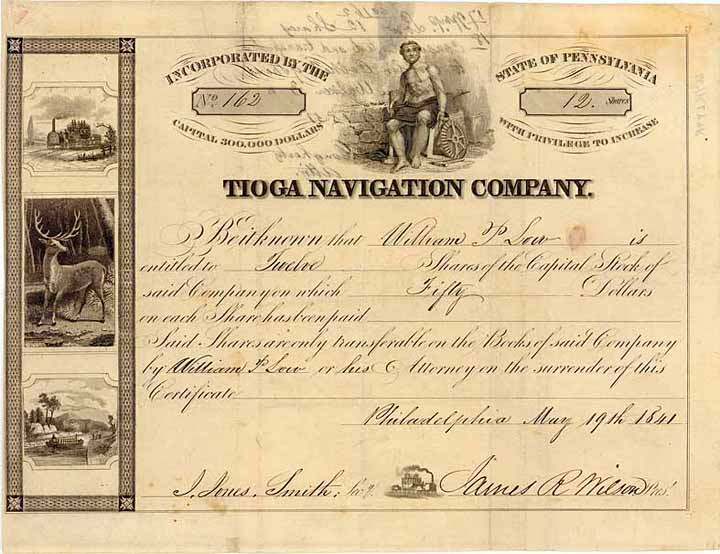 INCORPORATED BY THE
No. 162
CAPITAL 300,000 DOLLARS
STATE OF PENNSYLVANIA
12. Shares
WITH PRIVILEGE TO INCREASE
TIOGA NAVIGATION COMPANY.
Be it known that William P Low is
entitled to Twelve Shares of the Capital Stock of
said Company on which Fifty Dollars
on each Share has been paid
Said Shares are only transferable on the Books of said Company
by William P Low or his Attorney on the surrender of this
Certificate
Philadelphia May 19th 1841
J. Jones. Smith; Sec'y. James R Wilson Pres.